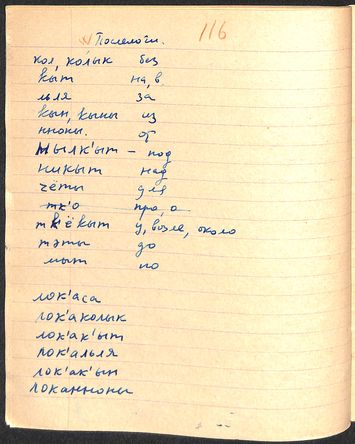 Послелоги. 116
кол, колык без
кыт на, в
ляля за
кын, кыны из
нноны. от
Мылк'ыт - под
никыт над
чёты для
тк'о про, о
тк'ёкыт у, возле, около
тэты до
мыт по
лок'аса
лок'аколык
лок'ак'ыт
лок'альля
лок'ак'ын
локанноны